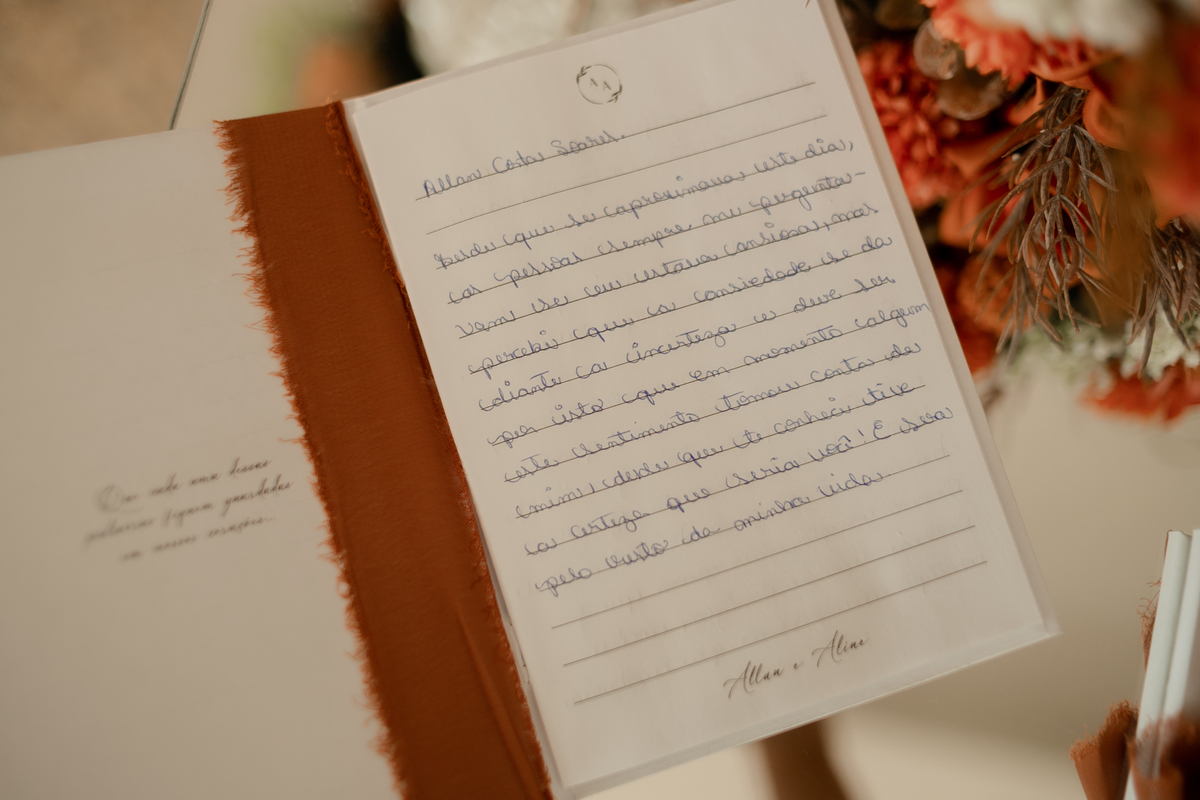 Que cada uma dessas
palavras fiquem guardadas
em nossos corações...
A A
Allan Costa Soares.
Desde que se aproximava este dia,
as pessoas sempre me pergunta-
vam se eu estava ansiosa, mas
percebi que a ansiedade se da
diante a incerteza e deve ser
por isto que em momento algum
este sentimento tomou conta de
mim, desde que te conheci tive
a certeza que seria você! E sera
pelo resto da minha vida.
Allan e Aline